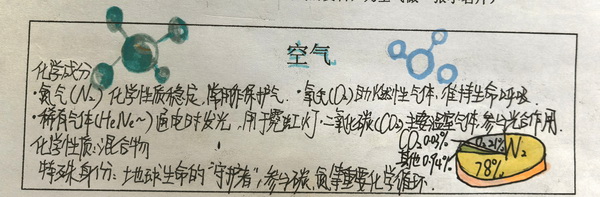 空气
化学成分
·氮气(N₂)化学性质稳定,常用作保护气.·氧气(O₂)助燃性气体,维持生命呼吸.
·稀有气体(He Ne~)通电时发光,用于霓虹灯·二氧化碳(CO₂)主要温室气体,参与光合作用
化学性质:混合物
特殊身份:地球生命的"守护者",参与碳、氮等重要化学循环.
CO₂ 0.03%
其他 0.94%
O₂ 21%
N₂
78%